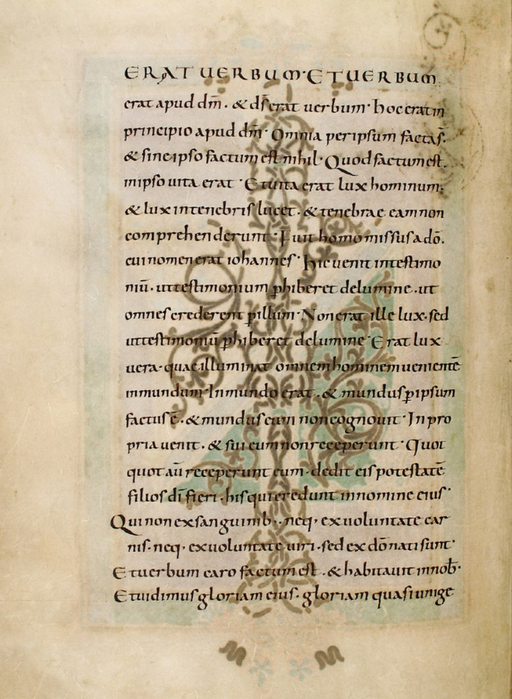 ERAT UERBUM· ET UERBUM
erat apud dm̄ . & ds̄ erat uerbum · hoc erat in
principio apud dm̄ · Omnia per ipsum facta s̄.
& sine ipso factum est nihil · Quod factum est.
in ipso uita erat · Et uita erat lux hominum;
& lux in tenebris lucet . & tenebrae eam non
comprehenderunt · Fuit homo missus a dō .
cui nomen erat iohannes · Hic uenit in testimo
niū . ut testimonium phiberet de lumine . ut
omnes crederent p illum · Non erat ille lux . sed
ut testimoniū phiberet de lumine · Erat lux
uera . quae illuminat omnem hominem uenientē
in mundum · In mundo erat . & mundus p ipsum
factus ē . & mundus eum non cognouit · In pro
pria uenit . & sui eum non receperunt · Quot
quot aū receperunt eum . dedit eis potestatē
filios dī fieri . his qui credunt in nomine eius ·
Qui non ex sanguinib · neq · ex uoluntate car
nis · neq · ex uoluntate uiri · sed ex dō nati sunt ·
Et uerbum caro factum est . & habitauit in nob ·
Et uidimus gloriam eius · gloriam quasi unige